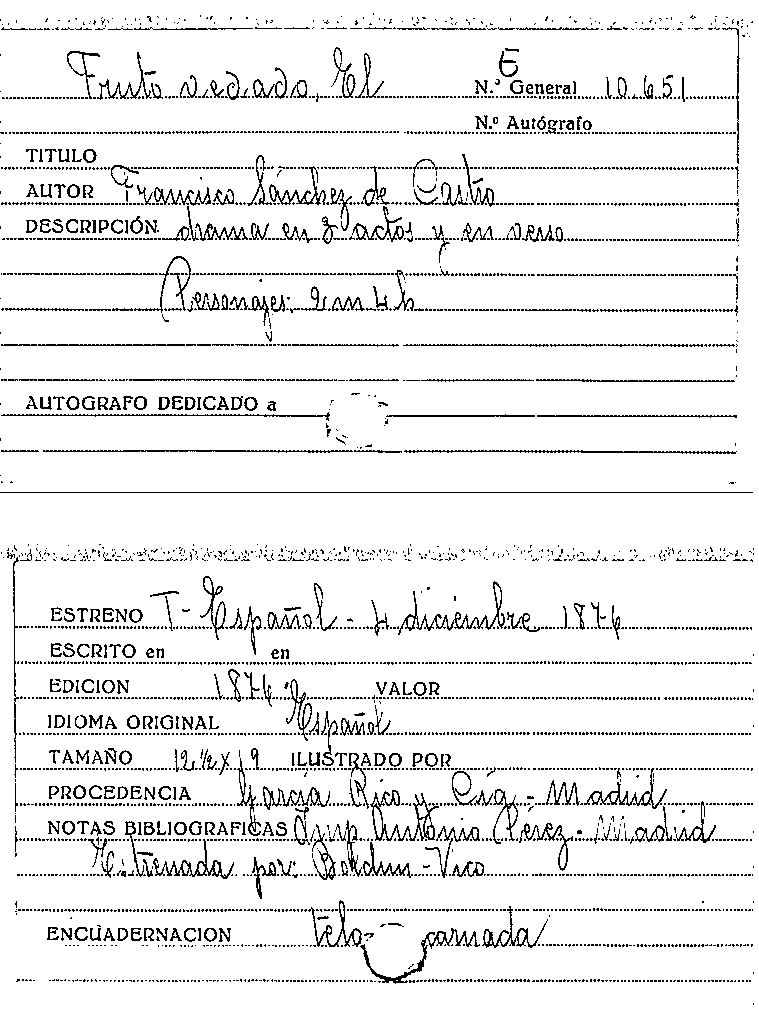 Fruto vedado, El
E
N.º General 10.651
N.º Autógrafo
TITULO
AUTOR Francisco Sánchez de Castro
DESCRIPCIÓN drama en 3 actos y en verso
Personajes: 2 m 4 h
AUTOGRAFO DEDICADO a
ESTRENO T- Español - 4 diciembre 1876
ESCRITO en en
EDICION 1876 VALOR
IDIOMA ORIGINAL Español
TAMAÑO 12 ½ x 19 ILUSTRADO POR
PROCEDENCIA García Rico y Cía - Madrid
NOTAS BIBLIOGRAFICAS Imp Antonio Pérez - Madrid
Estrenada por: Boldun - Vico
ENCUADERNACION tela